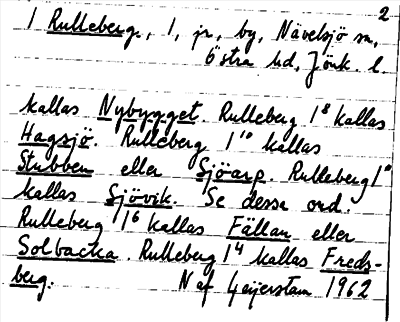 2
1 Rulleberg, 1, jr, by, Nävelsjö sn,
Östra hd, Jönk. l.
kallas Nybygget. Rulleberg 1⁸ kallas
Hagsjö. Rulleberg 1¹⁰ kallas
Stubben eller Sjöarp. Rulleberg 1¹¹
kallas Sjövik. Se dessa ord.
Rulleberg 1⁶ kallas Fällan eller
Solbacka. Rulleberg 1⁴ kallas Freds-
berg. N af Geijerstam 1962